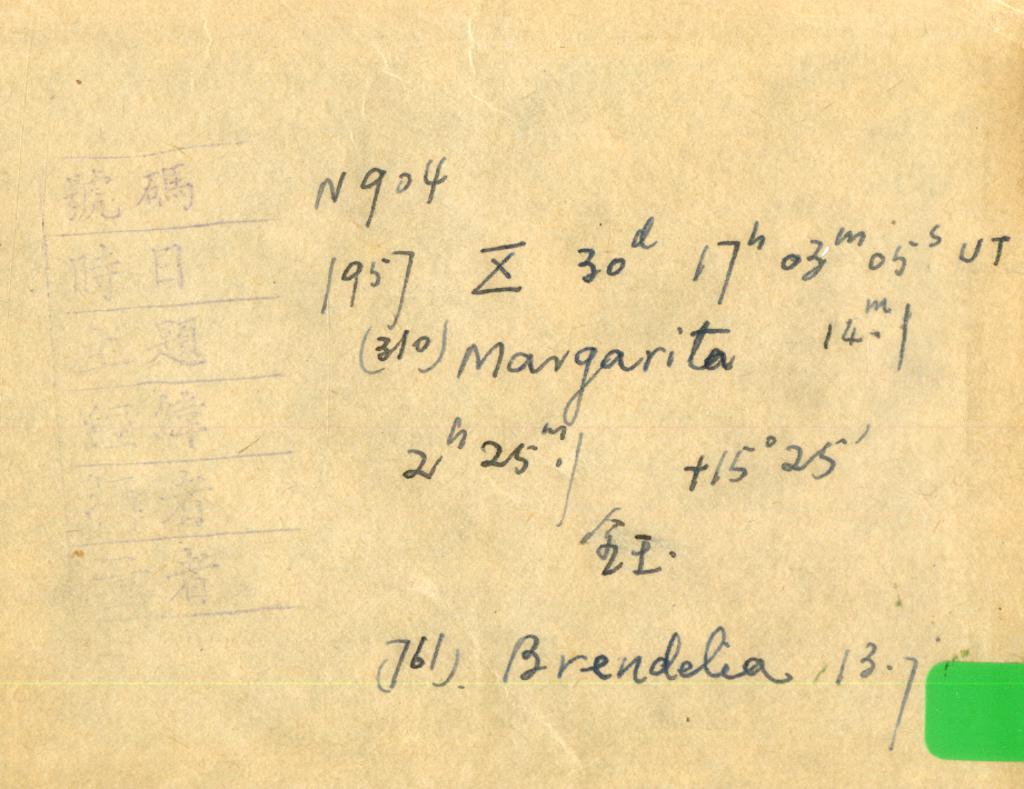 號碼
時日
題
緯
者
者
N 904
1957 X 30ᵈ 17ʰ 03ᵐ 05ˢ UT
(310) Margarita 14ᵐ.1
2ʰ 25ᵐ.1 +15° 25′
(761). Brendelia 13.7